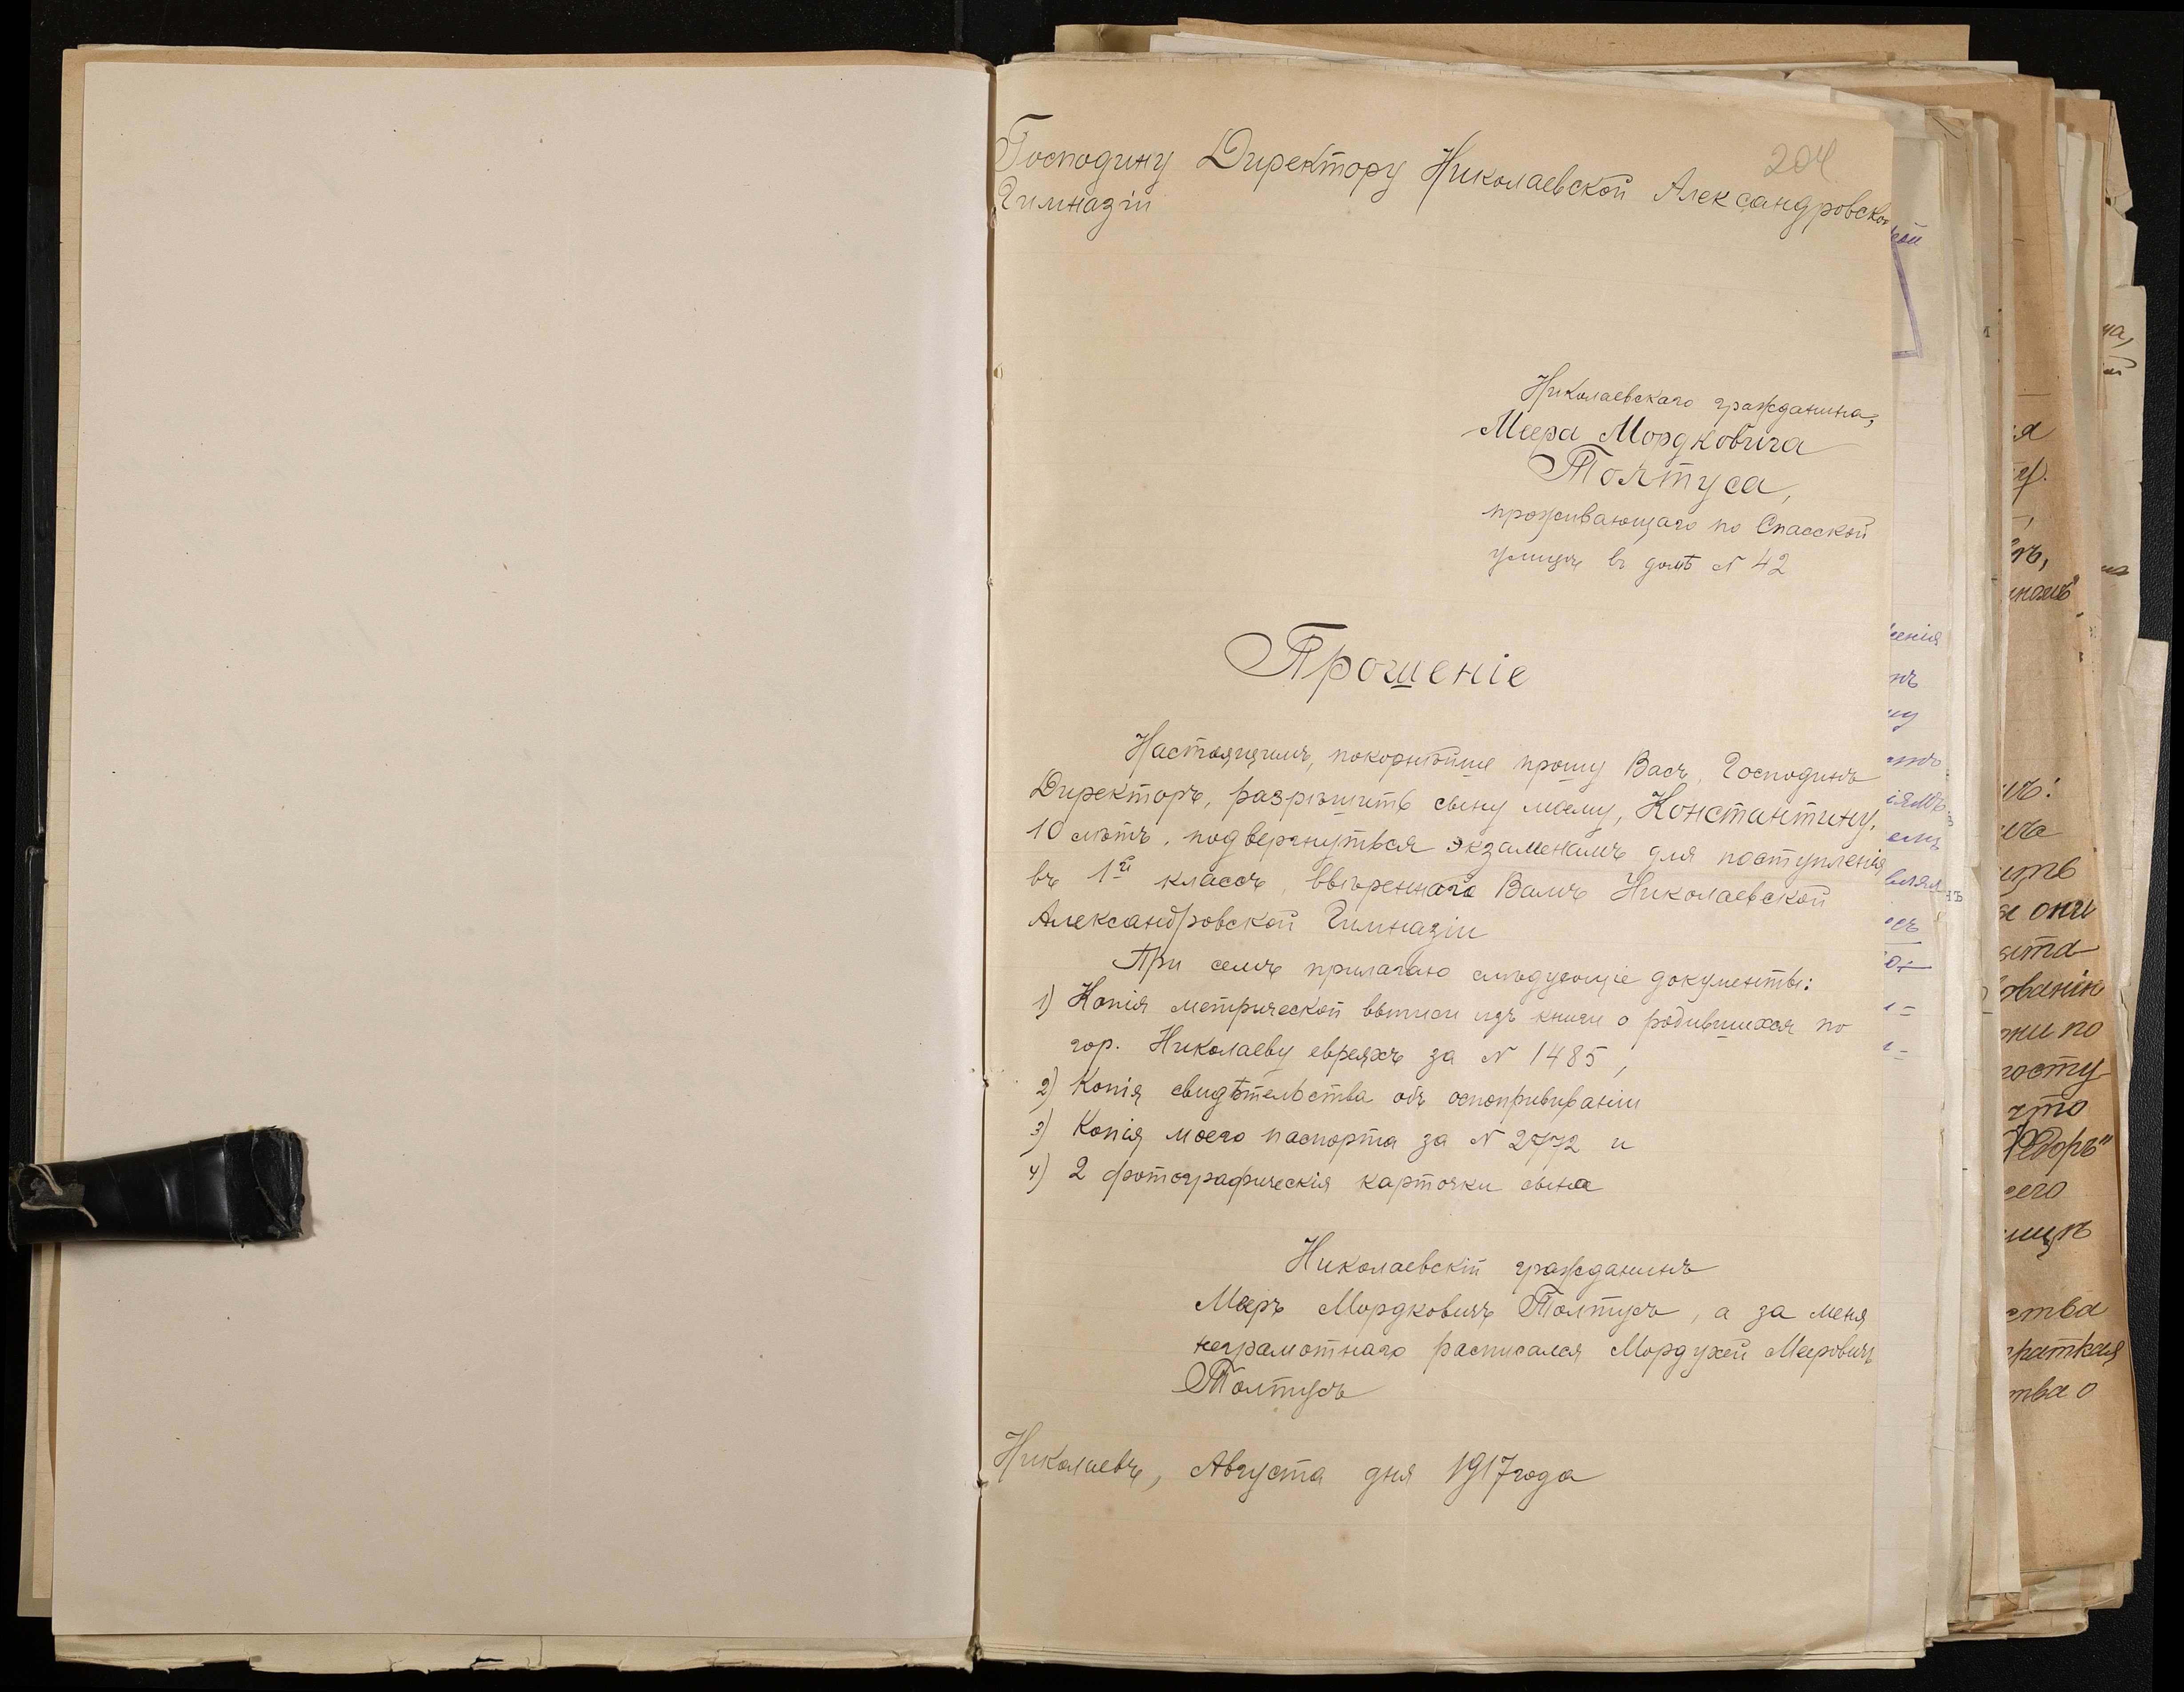 204
Господину Директору Николаевской Александровской
Гимназіи
Николаевскаго гражданина,
Меера Мордковича
Толтуса,
проживающаго по Спасской
улицѣ въ домѣ № 42
Прошеніе
Настоящимъ, покорнѣйше прошу Васъ, Господинъ
Директоръ, разрѣшить сыну моему, Константину,
10 лѣтъ, подвергнуться экзаменамъ для поступленія
въ 1й классъ, ввѣреннаго Вамъ Николаевской
Александровской Гимназіи
При семъ прилагаю слѣдующіе документы:
1) Копія метрической выписи изъ книги о родившихся по
гор. Николаеву евреяхъ за № 1485,
2) Копія свидѣтельства объ оспопрививаніи
3) Копія моего паспорта за № 2772 и
4) 2 фотографическія карточки сына
Николаевскій гражданинъ
Мееръ Мордковичъ Толтусъ, а за меня
неграмотнаго расписался Мордухей Мееровичъ
Толтусъ
Николаевъ, Августа дня 1917 года